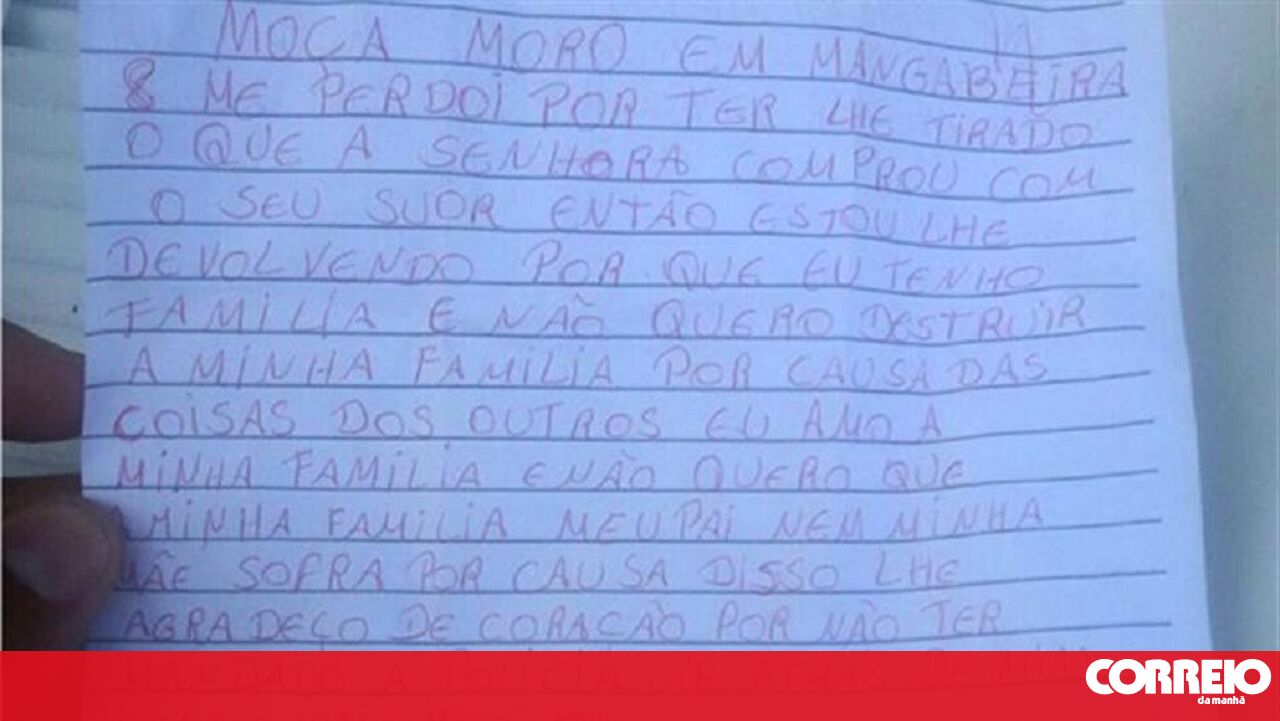 MOÇA MORO EM MANGABEIRA
8 ME PERDOI POR TER LHE TIRADO
O QUE A SENHORA COMPROU COM
O SEU SUOR ENTÃO ESTOU LHE
DEVOLVENDO POR QUE EU TENHO
FAMILIA E NÃO QUERO DESTRUIR
A MINHA FAMILIA POR CAUSA DAS
COISAS DOS OUTROS EU AMO A
MINHA FAMILIA E NÃO QUERO QUE
A MINHA FAMILIA MEU PAI NEM MINHA
MÃE SOFRA POR CAUSA DISSO LHE
AGRADEÇO DE CORAÇÃO POR NÃO TER
CORREIO
da manhã